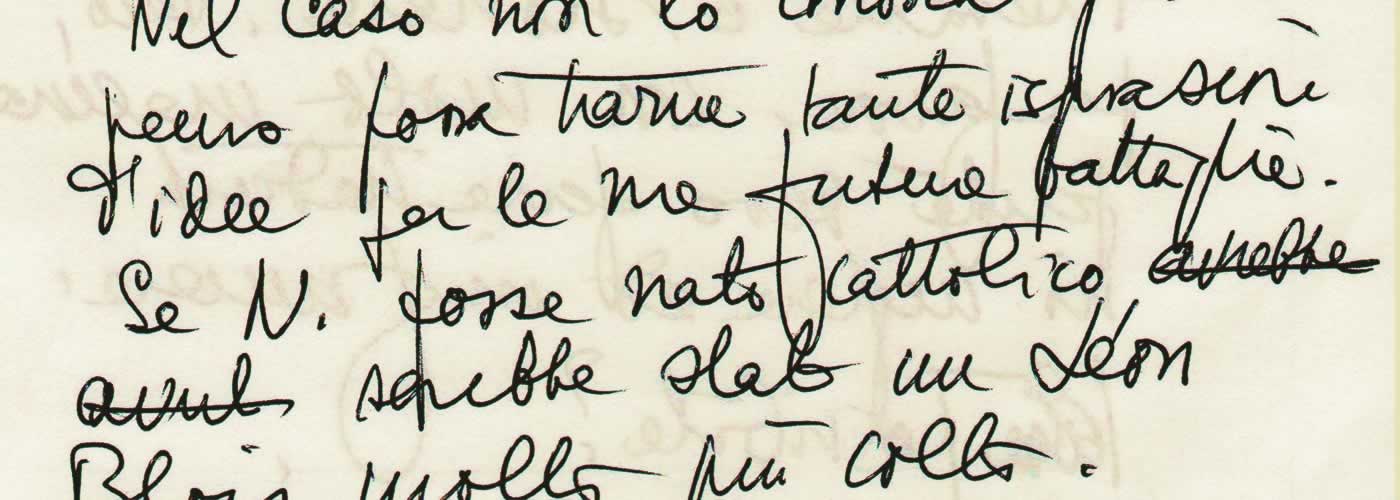 Nel caso non lo conosca
penso possa trarne tante ispirazioni
d'idee per le sue future battaglie.
Se N. fosse nato cattolico avrebbe
avuto sarebbe stato un Léon
Bloy molto più colto.